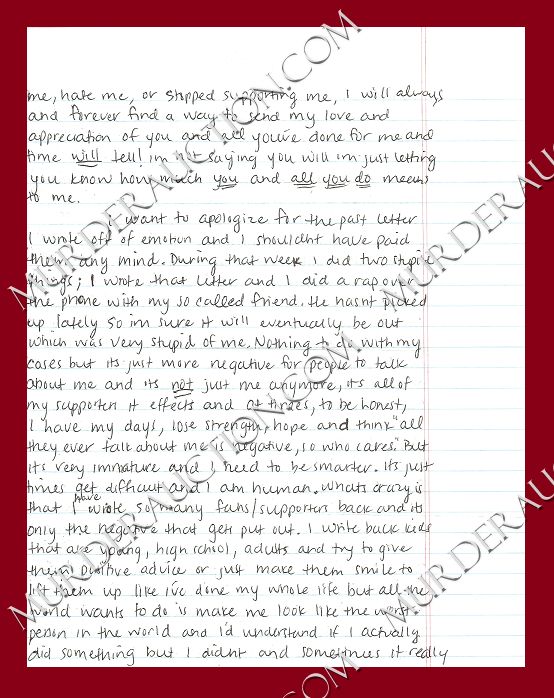 me, hate me, or stopped supporting me, I will always
and forever find a way to send my love and
appreciation of you and all you've done for me and
time will tell! im not saying you will im just letting
you know how much you and all you do means
to me.
I want to apologize for the past letter
I wrote off of emotion and I shouldnt have paid
them any mind. During that week I did two stupid
things; I wrote that letter and I did a rap over
the phone with my so called friend. He hasnt picked
up lately so im sure it will eventually be out
which was very stupid of me. Nothing to do with my
cases but its just more negative for people to talk
about me and its not just me anymore, its all of
my supporters it effects and at times, to be honest,
I have my days, lose strength, hope and think "all
they ever talk about me is negative, so who cares." But
its very immature and I need to be smarter. Its just
times get difficult and I am human. Whats crazy is
that I have wrote so many fans/supporters back and its
only the negative that gets put out. I write back kids
that are young, high school, adults and try to give
them positive advice or just make them smile to
lift them up like i've done my whole life but all the
world wants to do is make me look like the worst
person in the world and i'd understand if I actually
did something but I didnt and sometimes it really
MURDERAUCTION.COM
MURDERAUCTION.COM
MURDERAUCTION.COM